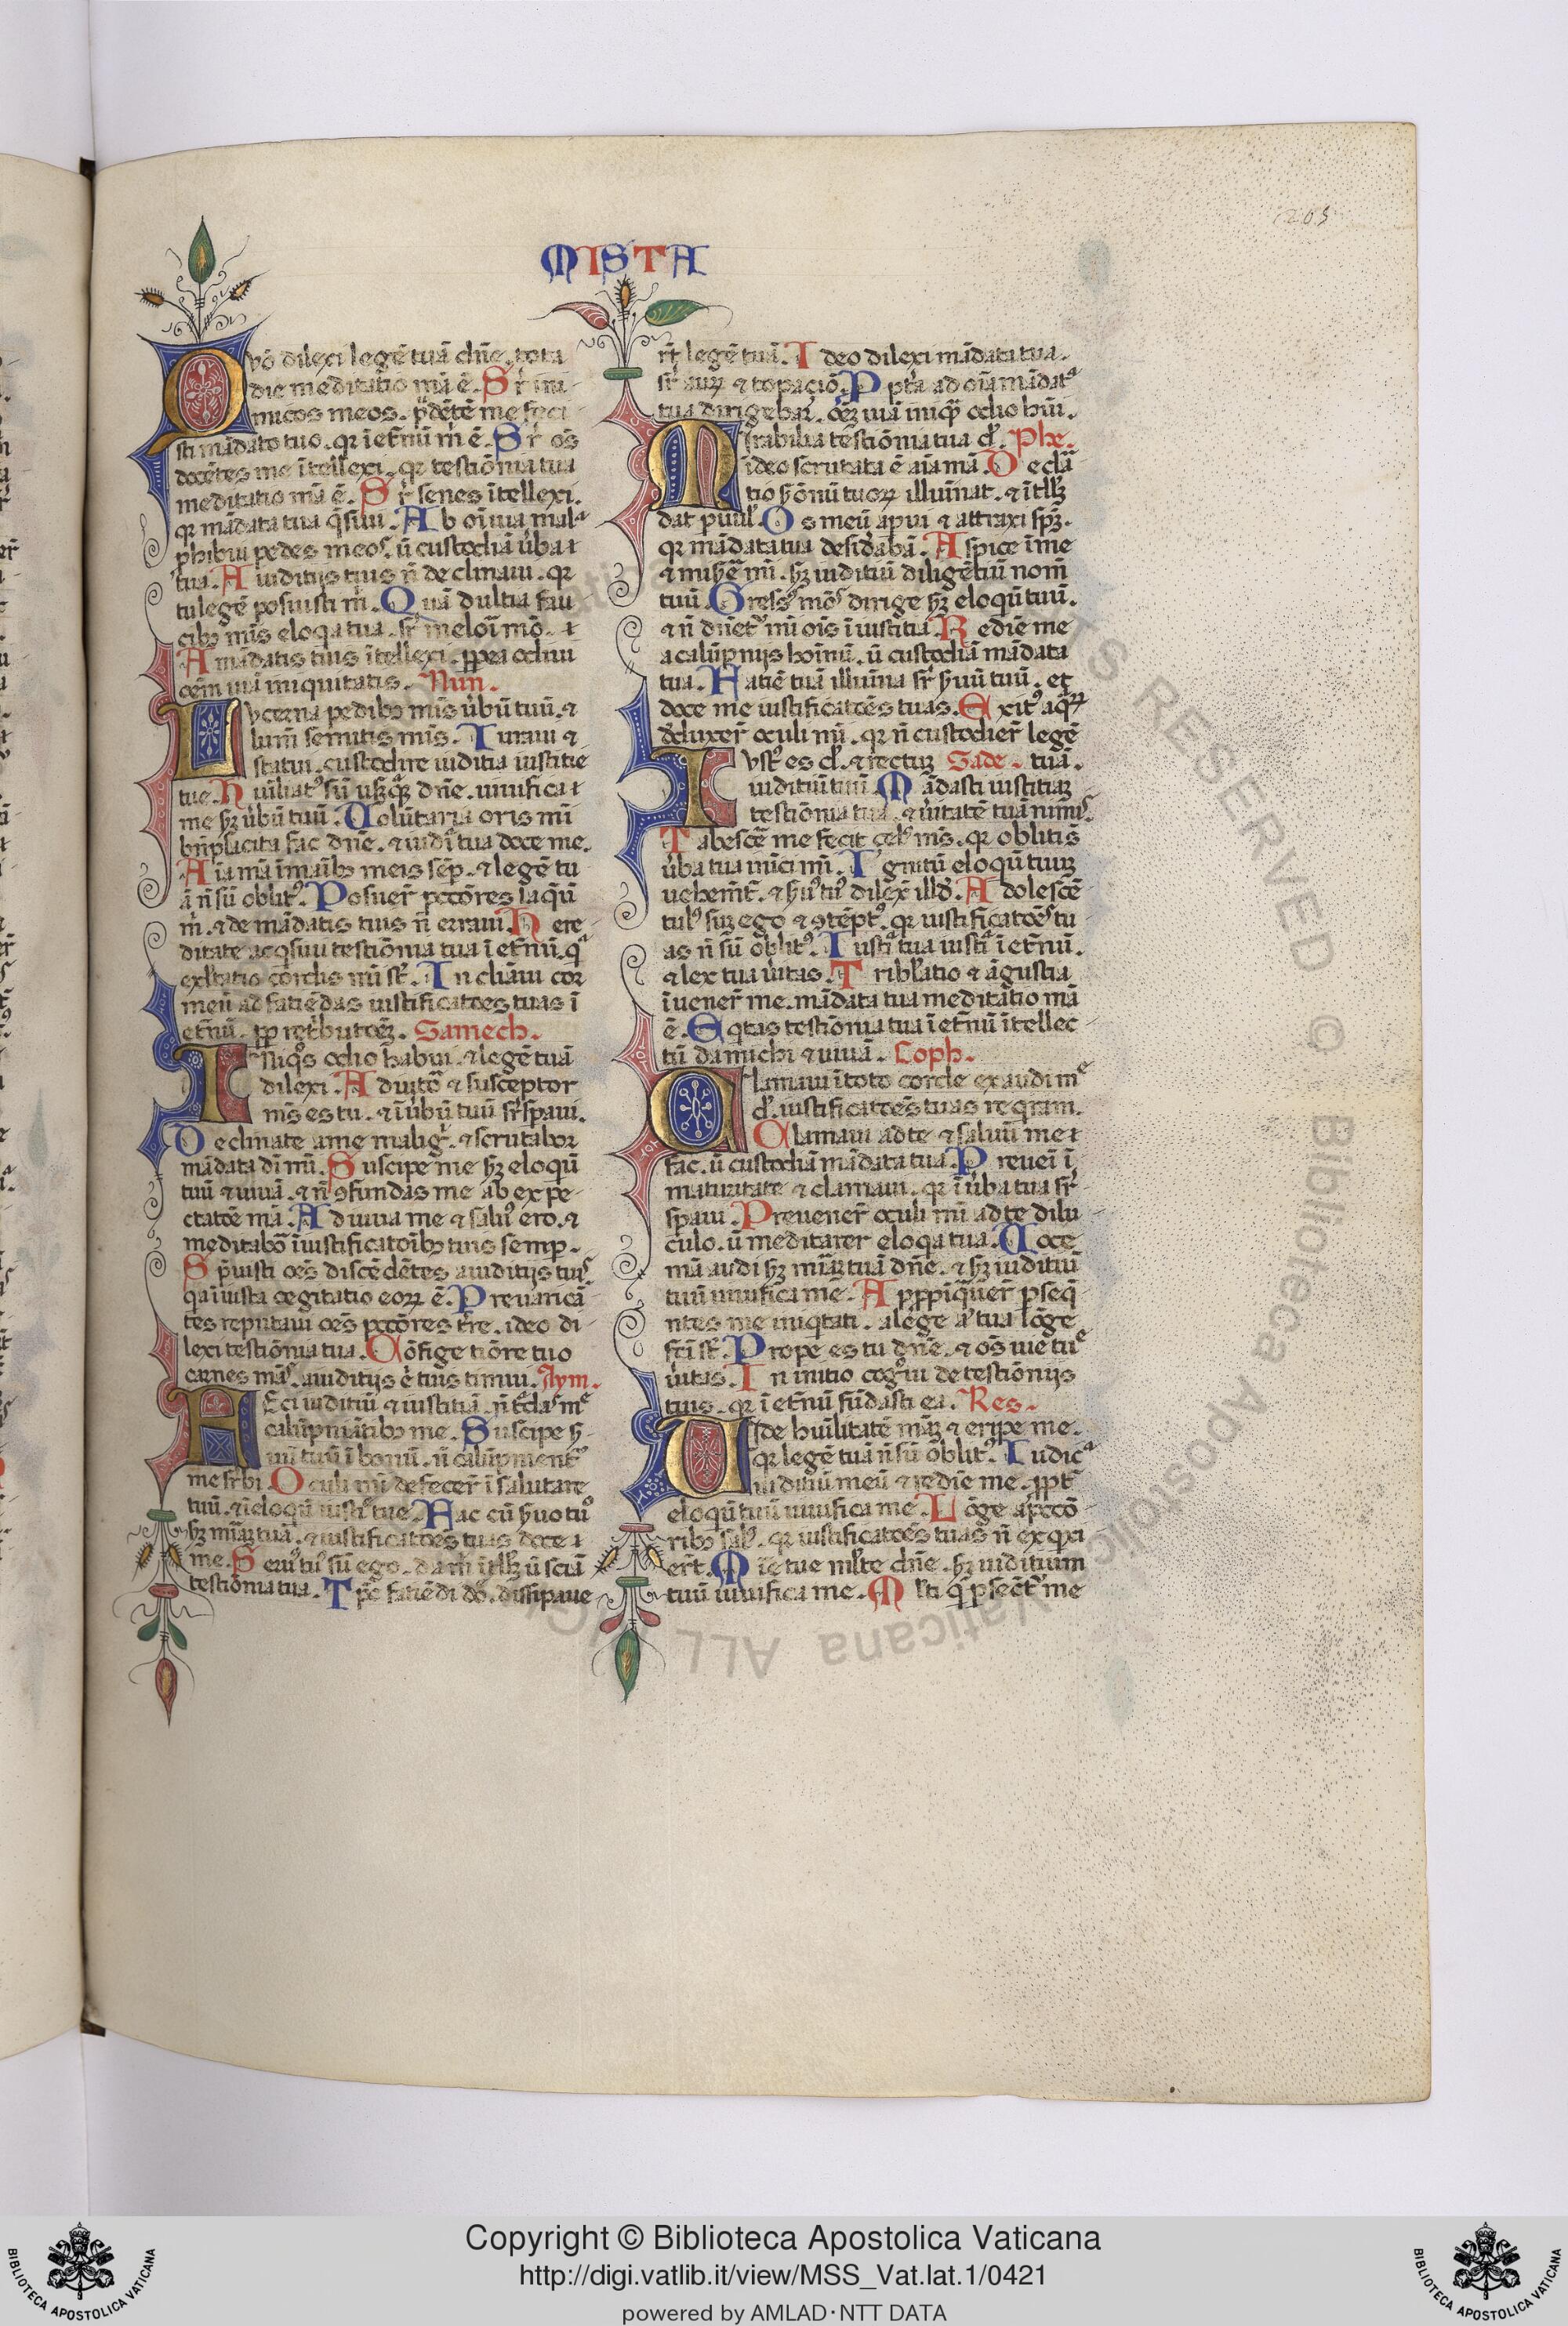 205
MISTA
Quō dilexi legē tuā dn̄e. tota
die meditatio mā ē. Sr̄ ini-
micos meos. p̄dētē me feci-
sti mādato tuo. qr ī et̄nū m̄ ē. Sr̄ os̄
docētes me ītellexi. qr testiōnia tua
meditatio mā ē. Sr̄ senes ītellexi.
qr mādata tua q̄siui. Ab oī uia mala
phibui pedes meos. ū custodiā ūba
tua. A iuditijs tuis n̄ declinaui. qr
tu legē posuisti m̄. Quā dultia fau-
cibꝫ mīs eloqa tua. sr̄ mel oī mō.
A mādatis tuis ītellexi. ꝓpea odiui
oēm uiā iniquitatis. Nun.
Lucerna pedibꝫ mīs ūbū tuū. ⁊
lum̄ semitis mīs. Iuraui ⁊
statui. custodire iuditia iustitie
tue. Humiliatꝰ sū usqꝫq̄ dn̄e. uiuifica
me sꝫ ūbū tuū. Uolūtaria oris mī
bn̄placita fac dn̄e. ⁊ iudī tua doce me.
Aīa mā ī maībꝫ meis sēp. ⁊ legē tu-
ā n̄ sū oblitꝰ. Posuer̄ pctōres laqū
m̄. ⁊ de mādatis tuis n̄ erraui. Here-
ditate acqsiui testiōnia tua ī et̄nū. qa
exultatio cordis mī st̄. Inclinaui cor
meū ad fatiēdas iustificatōes tuas ī
et̄nū. ꝓp ret̄butōeꝫ. Samech.
Iniqꝰs odio habui. ⁊ legē tuā
dilexi. Adiutor ⁊ susceptor
mīs es tu. ⁊ ī ūbū tuū sr̄spaui.
Declinate a me maliḡ. ⁊ scrutabor
mādata dī mī. Suscipe me sꝫ eloqū
tuū ⁊ uiuā. ⁊ n̄ ꝯfundas me ab expe-
ctatōe mā. Adiuua me ⁊ saluꝰ ero. ⁊
meditabor̄ ī iustificatoībꝫ tuis semp.
Sp̄uisti oēs discēdētes a iuditijs tuis.
qa iniusta cogitatio eorꝝ ē. Preuaricā-
tes reputaui oēs pctōres tr̄e. ideo di-
lexi testiōnia tua. Cōfige tiōre tuo
carnes mās. a iuditijs ē tuis timui. Aym.
Feci iuditiū ⁊ iustitiā. n̄ t̄das me
calūpniātibꝫ me. Suscipe ẜ-
uū tuū ī bonū. n̄ calūpnient̄
me sr̄bi. Oculi mī defecer̄ ī salutare
tuū. ⁊ ī eloqū iustī tue. Fac cū ẜuo tuo
sꝫ mīaꝫ tuā. ⁊ iustificatōes tuas doce
me. Seruꝰ tuꝰ sū ego. da m̄ ītllꝫ ū sciā
testiōnia tua. Tp̄s fatiēdi dō. dissipaue-
rt̄ legē tuā. Ideo dilexi mādata tua.
sr̄ auꝝ ⁊ topaciō. Pptr̄a ad oīa mādata
tua dirigebar. oēꝫ uiā iniqꝫ odio hūi.
Mirabilia testiōnia tua d̄. Phe.
ideo scrutata ē aīa mā. Declā̄-
tio ẜmōnū tuoꝝ illuīnat. ⁊ ītllꝫ
dat p̄uul̄. Os meū apui ⁊ attraxi sp̄ꝫ.
qr mādata tua desid̄abā. Aspice ī me
⁊ mis̄e mī. sꝫ iuditiū diligētiū nom̄
tuū. Gressꝰ mōs dirige sꝫ eloqū tuū.
⁊ n̄ dn̄etꝰ mī oīs ī iustitia. Redīe me
a calūpnijs hoīnū. ū custodiā mādata
tua. Fatiē tuā illuīna sr̄ ẜuū tuū. et
doce me iustificatōes tuas. Exitꝰ aqꝝ
deduxer̄ oculi mī. qr n̄ custodier̄ legē
Iustꝰ es d̄. ⁊ rectuꝫ Sade. tuā.
iuditiū tuū. Mādasti iustitiaꝫ
testiōnia tua. ⁊ ūitatē tuā nimis.
Tabescē me fecit zelꝰ mīs. qr oblitis̄
ūba tua inīci mī. Ignitū eloqū tuuꝫ
uehem̄t̄. ⁊ ẜuꝰ tuꝰ dilex̄ illd̄. Adolescē-
tulꝰ suꝫ ego ⁊ ꝯtēptꝰ. qr iustificatōes tu-
as n̄ sū oblitꝰ. Iustī tua iustī ī et̄nū.
⁊ lex tua ūitas. Tribl̄atio ⁊ āgustia
īuener̄ me. mādata tua meditatio mā
ē. Eqtas testiōnia tua ī et̄nū ītellec-
tū da michi ⁊ uiuā. Coph.
Clamaui ī toto corde exaudi me
d̄. iustificatōes tuas reqram.
Clamaui ad te ⁊ saluū me
fac. ū custodiā mādata tua. Preueī ī
maturitate ⁊ clamaui. qr ī ūba tua sr̄-
spaui. Preuener̄ oculi mī ad te dilu-
culo. ū meditarer eloqa tua. Uoce
mā audi sꝫ mīaꝫ tuā dn̄e. ⁊ sꝫ iuditiū
tuū uiuifica me. Aꝓpīq̄uer̄ pseq̄-
ntes me iniqtati. a lege a᷒ tua lōge
fcī st̄. Prope es tu dn̄e. ⁊ oēs uie tue
ūitas. In initio cogꝰui de testiōnijs
tuis. qr ī et̄nū fūdasti ea. Res.
Uide huīlitatē māꝫ ⁊ eripe me.
qr legē tuā n̄ sū oblitꝰ. Iudica
iuditiū meū ⁊ redīe me. ꝓpt̄
eloqū tuū uiuifica me. Lōge a pctō-
ribꝫ salꝰ. qr iustificatōes tuas n̄ exqxi-
ert̄. Mīe tue ml̄te dn̄e. sꝫ iuditium
tuū uiuifica me. Ml̄ti q̄ psecūt̄ me
ALL RIGHTS RESERVED © Biblioteca Apostolica Vaticana
Copyright © Biblioteca Apostolica Vaticana
http://digi.vatlib.it/view/MSS_Vat.lat.1/0421
powered by AMLAD·NTT DATA
BIBLIOTECA APOSTOLICA VATICANA
BIBLIOTECA APOSTOLICA VATICANA